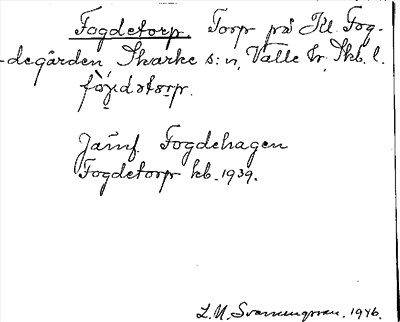 Fogdetorp. Torp på Kl. Fog-
-degården Skarke s:n, Valle hr, Skb. l.
Jämf. Fogdehagen
Fogdetorp kb. 1939.
L.M. 1946.